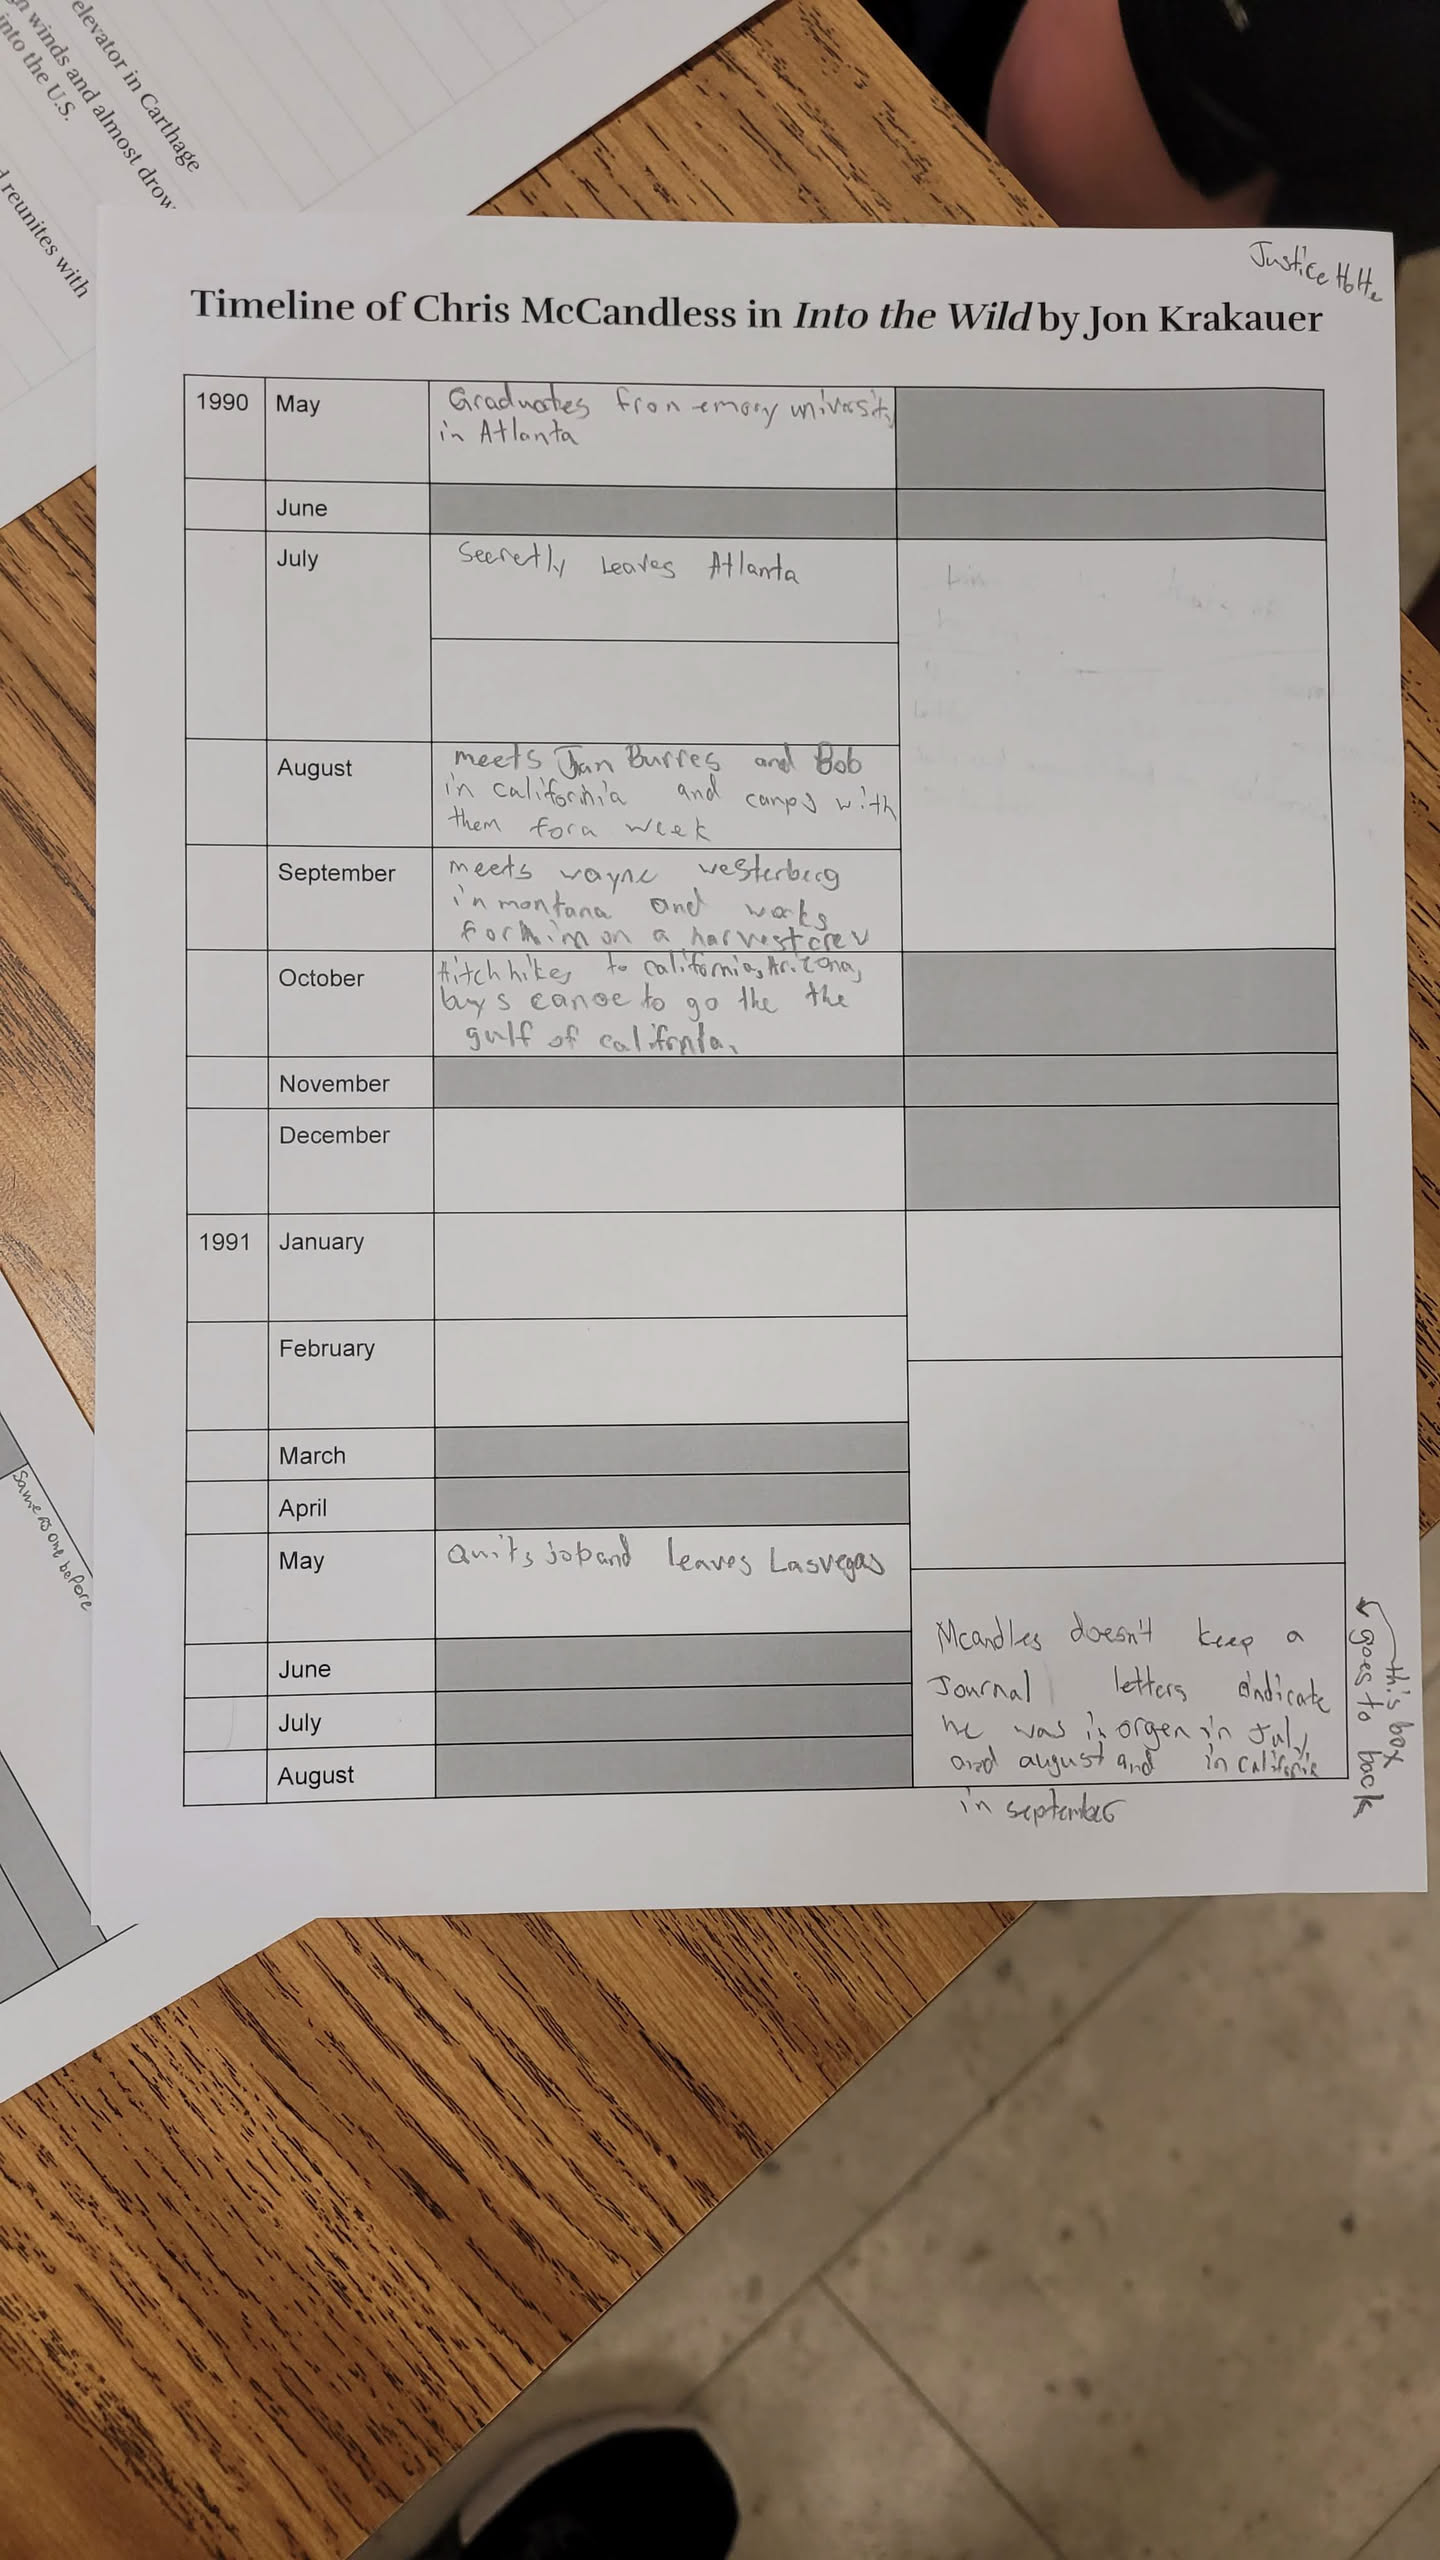 elevator in Carthage
winds and almost drow
into the U.S.
reunites with
Justice
Timeline of Chris McCandless in Into the Wild by Jon Krakauer
1990 May Graduates fron emory university
in Atlanta
June
July Secretly Leaves Atlanta
August meets Jan Burres and Bob
in california and camps with
them for a week
September meets wayne westerberg
in montana and works
for him on a harvest crew
October Hitchhikes to california, Arizona,
buys canoe to go the the
gulf of califrnia.
November
December
1991 January
February
March
April
May Quits job and leaves Las vegas
June
July
August
Mcandles doesn't keep a
Journal letters indicate
he was in orgen in July
and august and in califorie
in september
this box
goes to back
Same as one before